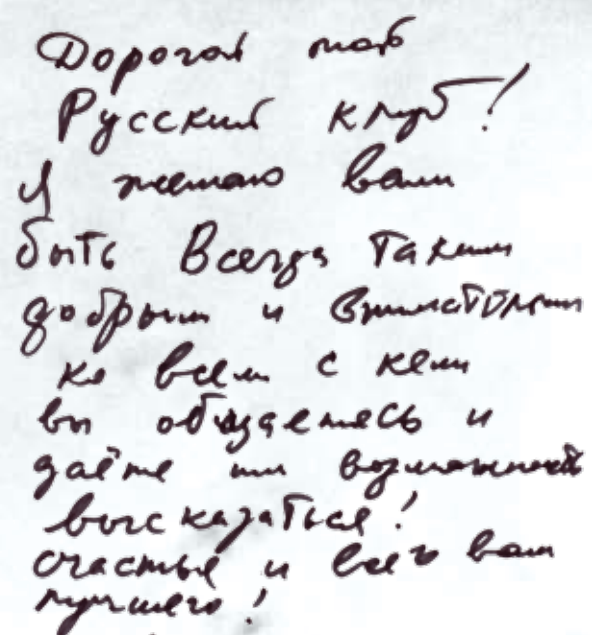 Дорогой наш
Русский клуб!
Я желаю вам
быть всегда таким
добрым и внимательным
ко всем с кем
вы общаетесь и
даёте им возможность
высказаться!
счастья и всего вам
лучшего!